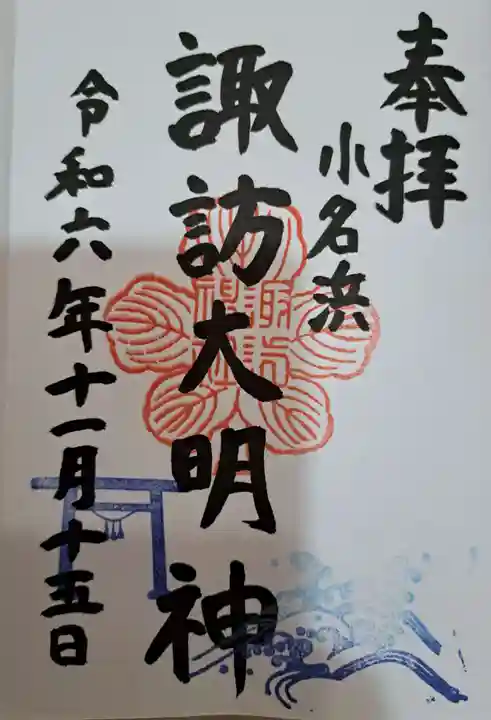 奉拝
小名浜
諏訪大明神
令和六年十一月十五日